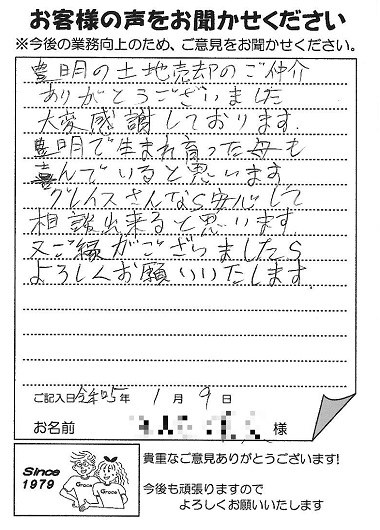 お客様の声をお聞かせください
※今後の業務向上のため、ご意見をお聞かせください。
豊明の土地売却のご仲介
ありがとうございました
大変感謝しております.
豊明で生まれ育った母も
喜んでいると思います
グレイスさんなら安心して
相談出来ると思います
又ご縁がございましたら
よろしくお願いいたします.
ご記入日 令和5年 1月 9日
お名前 様
Since
1979
Grace
Grace
貴重なご意見ありがとうございます!
今後も頑張りますので
よろしくお願いいたします